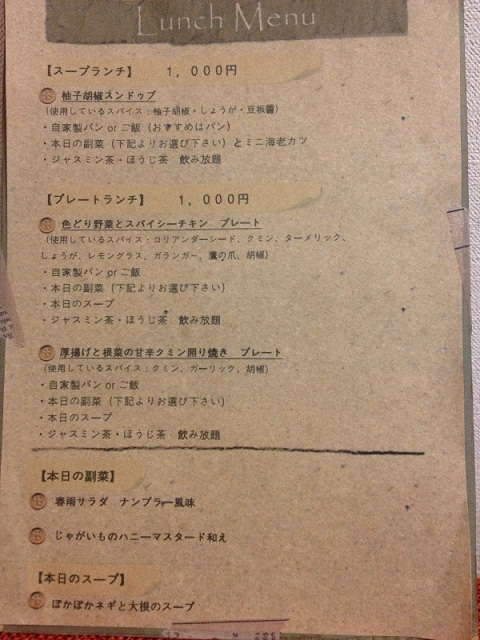 Lunch Menu
【スープランチ】 1,000円
柚子胡椒スンドゥブ
(使用しているスパイス:柚子胡椒・しょうが・豆板醤)
・自家製パン or ご飯 (おすすめはパン)
・本日の副菜 (下記よりお選び下さい) とミニ海老カツ
・ジャスミン茶・ほうじ茶 飲み放題
【プレートランチ】 1,000円
色どり野菜とスパイシーチキン プレート
(使用しているスパイス:コリアンダーシード、クミン、ターメリック、
しょうが、レモングラス、ガランガー、鷹の爪、胡椒)
・自家製パン or ご飯
・本日の副菜 (下記よりお選び下さい)
・本日のスープ
・ジャスミン茶・ほうじ茶 飲み放題
厚揚げと根菜の甘辛クミン照り焼き プレート
(使用しているスパイス:クミン、ガーリック、胡椒)
・自家製パン or ご飯
・本日の副菜 (下記よりお選び下さい)
・本日のスープ
・ジャスミン茶・ほうじ茶 飲み放題
【本日の副菜】
春雨サラダ ナンプラー風味
じゃがいものハニーマスタード和え
【本日のスープ】
ぽかぽかネギと大根のスープ